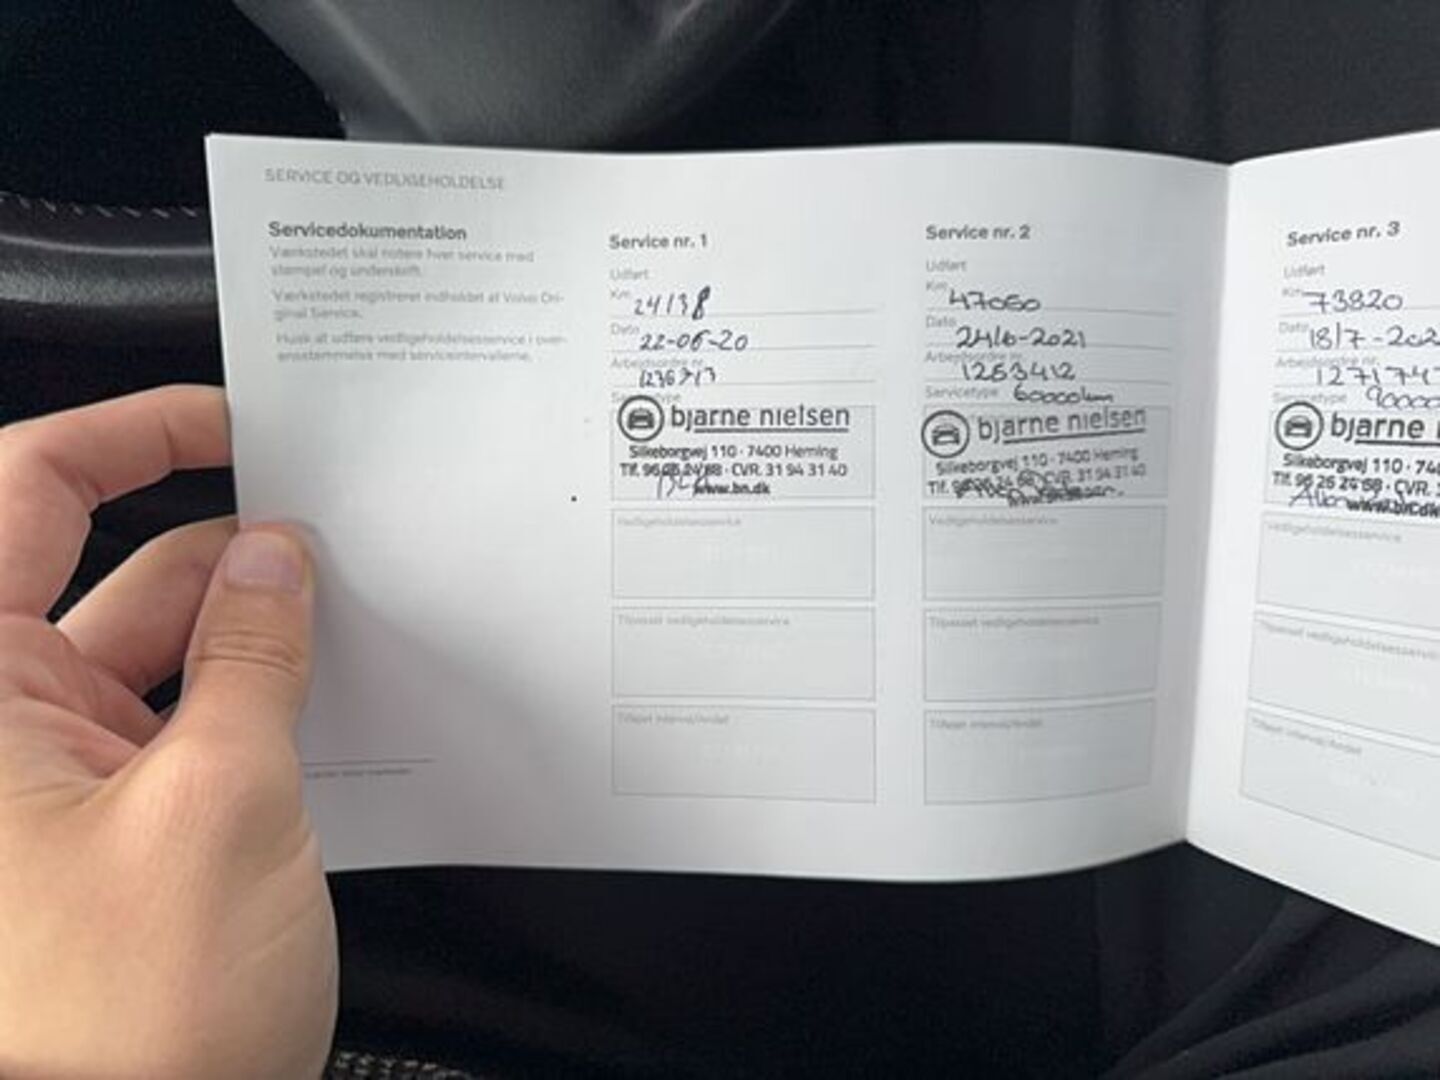 SERVICE OG VEDLIGEHOLDELSE
Servicedokumentation
Værkstedet skal notere hver service med
stempel og underskrift.
Værkstedet registrerer indholdet af Volvo Ori-
ginal Service.
Husk at udføre vedligeholdelsesservice i over-
ensstemmelse med serviceintervallerne.
Service nr. 1
Udført
Km 24138
Dato 22-06-20
Arbejdsordre nr.
Servicetype
bjarne nielsen
Silkeborgvej 110 · 7400 Herning
Tlf. 96 26 24 68 · CVR. 31 94 31 40
www.bn.dk
Vedligeholdelsesservice
Tilpasset vedligeholdelsesservice
Tilføjet interval/Andet
Service nr. 2
Udført
Km 47060
Dato 24/6-2021
Arbejdsordre nr. 1263412
Servicetype 60000km
bjarne nielsen
Silkeborgvej 110 · 7400 Herning
Tlf. 96 26 24 68 · CVR. 31 94 31 40
Vedligeholdelsesservice
Tilpasset vedligeholdelsesservice
Tilføjet interval/Andet
Service nr. 3
Udført
Km 73820
Dato 18/7-202
Arbejdsordre nr. 127174
Servicetype 9000
bjarne
Silkeborgvej 110 · 74
Tlf. 96 26 24 68 · CVR.
www.bn.dk
Vedligeholdelsesservice
Tilpasset vedligeholdelsesservi
Tilføjet interval/Andet